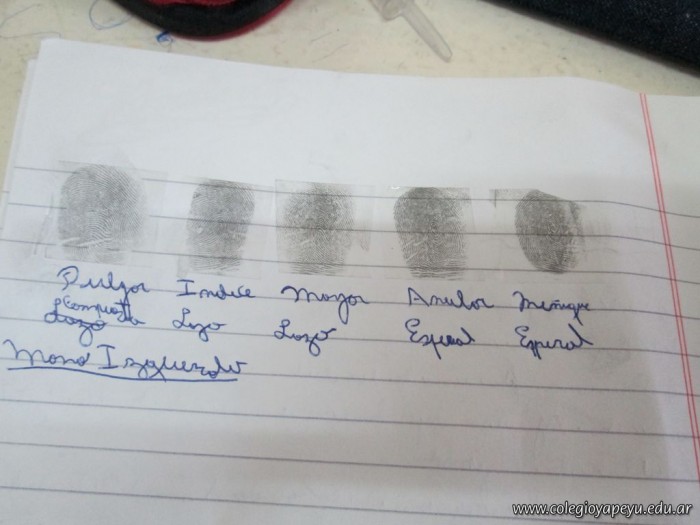 Pulgar Indice Mayor Anular Meñique
Compuesto
Lazo Lazo Lazo Espiral Espiral
Mano Izquierda
www.colegioyapeyu.edu.ar